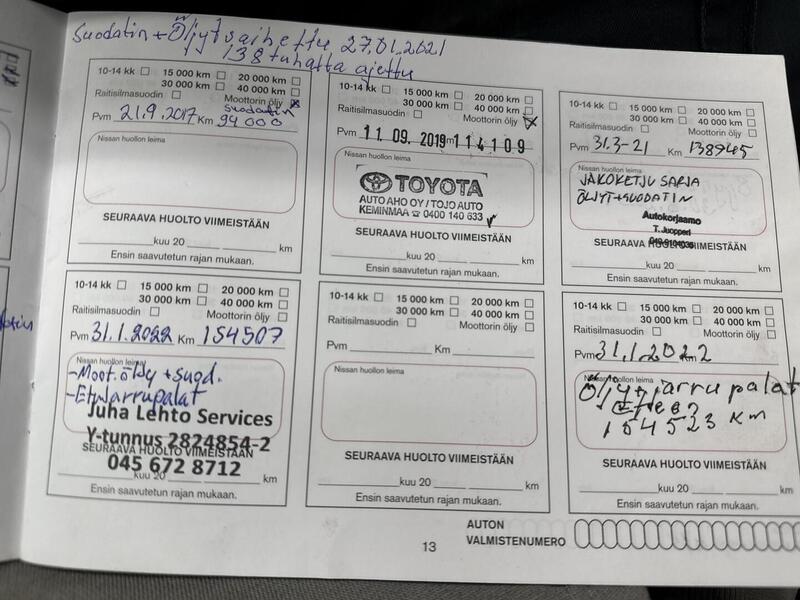 Suodatin + Öljyt vaihettu 27.01.2021
138 tuhatta ajettu
10-14 kk 15 000 km 20 000 km
30 000 km 40 000 km
Raitisilmasuodin Moottorin öljy
suodatin
Pvm 21.9.2017 Km 94000
Nissan huollon leima
SEURAAVA HUOLTO VIIMEISTÄÄN
kuu 20 km
Ensin saavutetun rajan mukaan.
10-14 kk 15 000 km 20 000 km
30 000 km 40 000 km
Raitisilmasuodin Moottorin öljy
Pvm 11.09.2019 Km 114109
Nissan huollon leima
TOYOTA
AUTO AHO OY / TOJO AUTO
KEMINMAA ☎ 0400 140 633
SEURAAVA HUOLTO VIIMEISTÄÄN
kuu 20 km
Ensin saavutetun rajan mukaan.
10-14 kk 15 000 km 20 000 km
30 000 km 40 000 km
Raitisilmasuodin Moottorin öljy
Pvm 31.3-21 Km 138945
Nissan huollon leima
JAKOKETJU SARJA
ÖLJYT+SUODATIN
Autokorjaamo
T. Juopperi
SEURAAVA HUOLTO VIIMEISTÄÄN
kuu 20 km
Ensin saavutetun rajan mukaan.
10-14 kk 15 000 km 20 000 km
30 000 km 40 000 km
Raitisilmasuodin Moottorin öljy
Pvm 31.1.2022 Km 154507
Nissan huollon leima
-Moot.öljy + suod.
-Etujarrupalat
Juha Lehto Services
Y-tunnus 2824854-2
SEURAAVA HUOLTO VIIMEISTÄÄN
045 672 8712
kuu 20 km
Ensin saavutetun rajan mukaan.
10-14 kk 15 000 km 20 000 km
30 000 km 40 000 km
Raitisilmasuodin Moottorin öljy
Pvm Km
Nissan huollon leima
SEURAAVA HUOLTO VIIMEISTÄÄN
kuu 20 km
Ensin saavutetun rajan mukaan.
10-14 kk 15 000 km 20 000 km
30 000 km 40 000 km
Raitisilmasuodin Moottorin öljy
Pvm 31.1.2022
Nissan huollon leima
Öljy+jarrupalat
154523 km
SEURAAVA HUOLTO VIIMEISTÄÄN
kuu 20 km
Ensin saavutetun rajan mukaan.
AUTON
VALMISTENUMERO
13